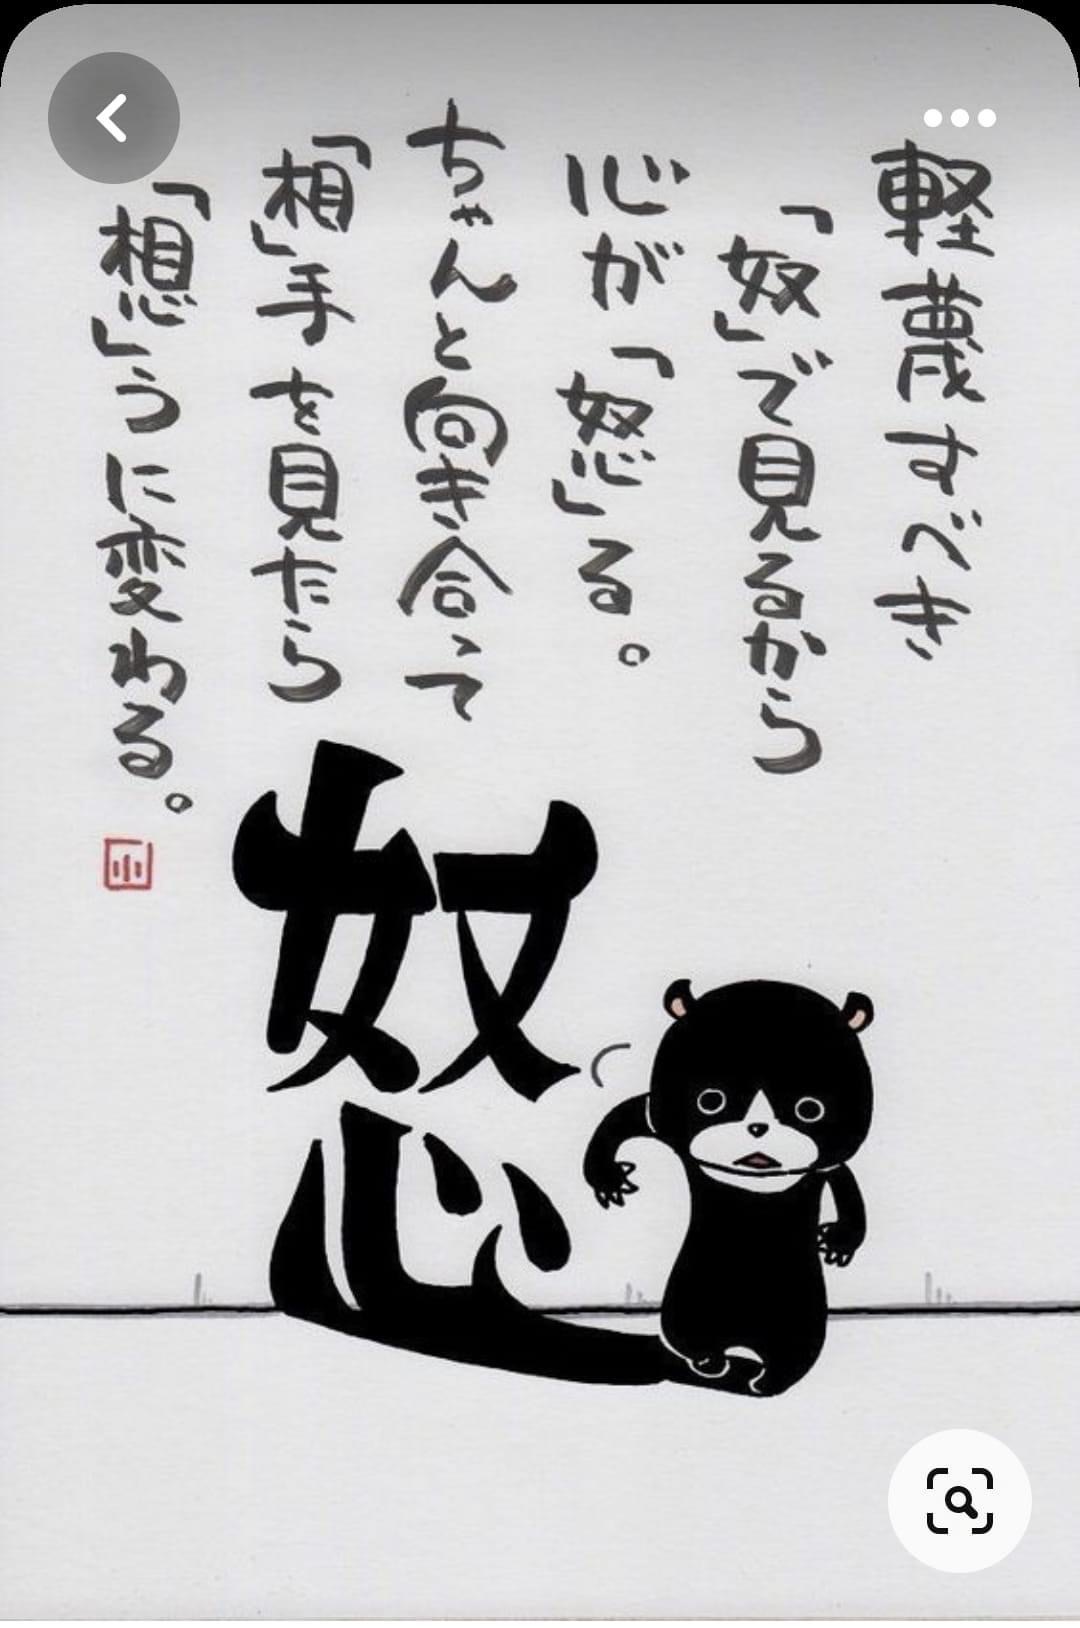 軽蔑すべき
「奴」で見るから
心が「怒」る。
ちゃんと向き合って
「相」手を見たら
「想」うに変わる。
怒